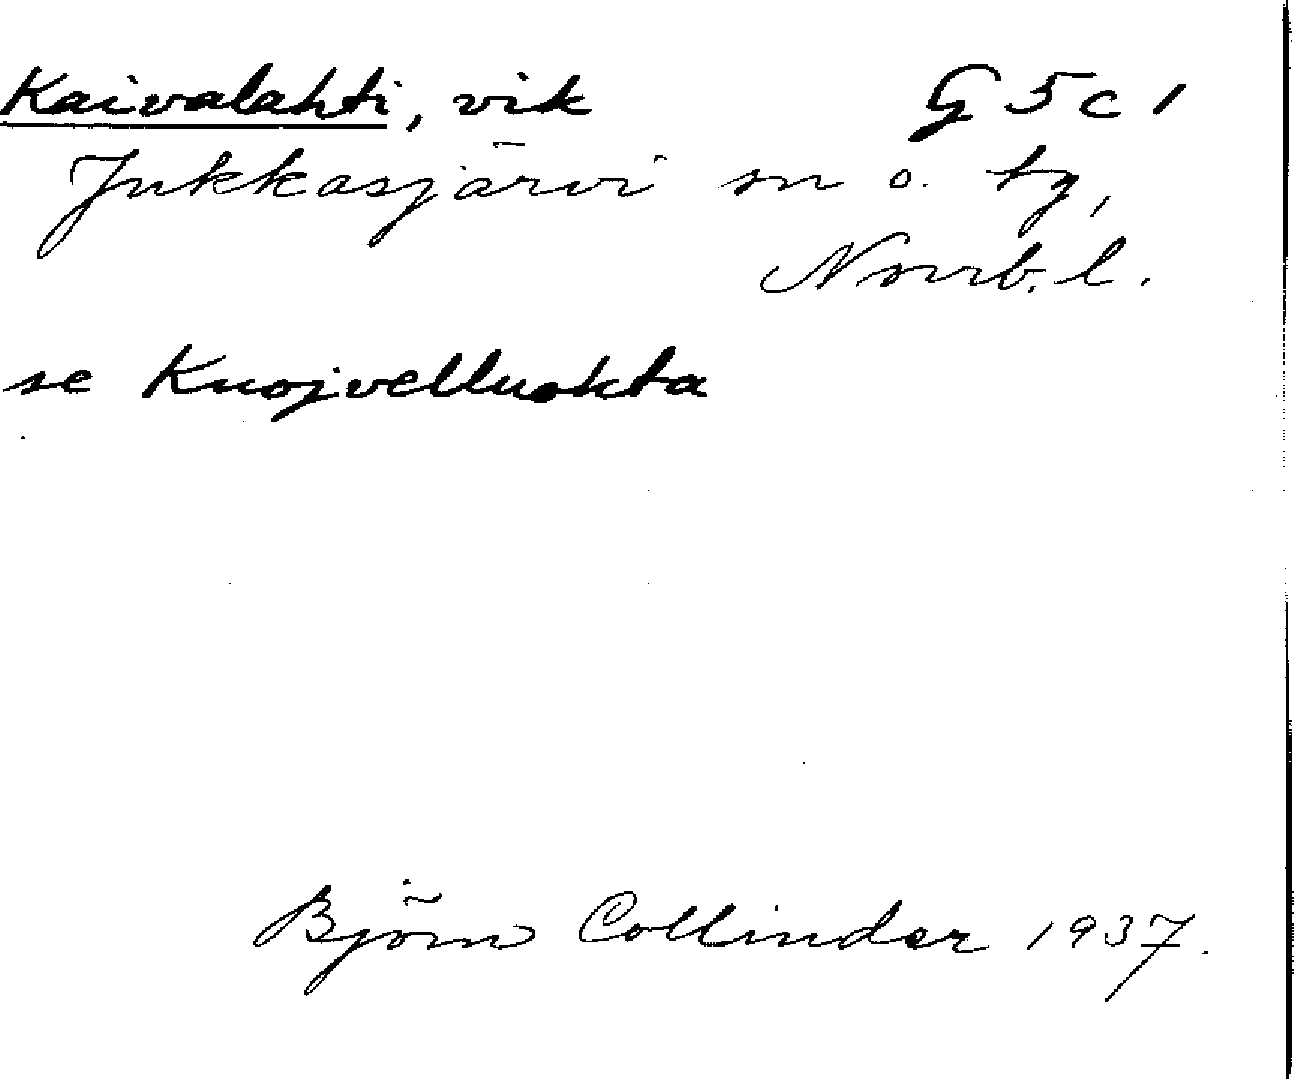 Kaivalahti, vik G 5 c 1
Jukkasjärvi sn o. tg,
Norrb. l.
se Kuojvelluokta
Björn Collinder 1937.